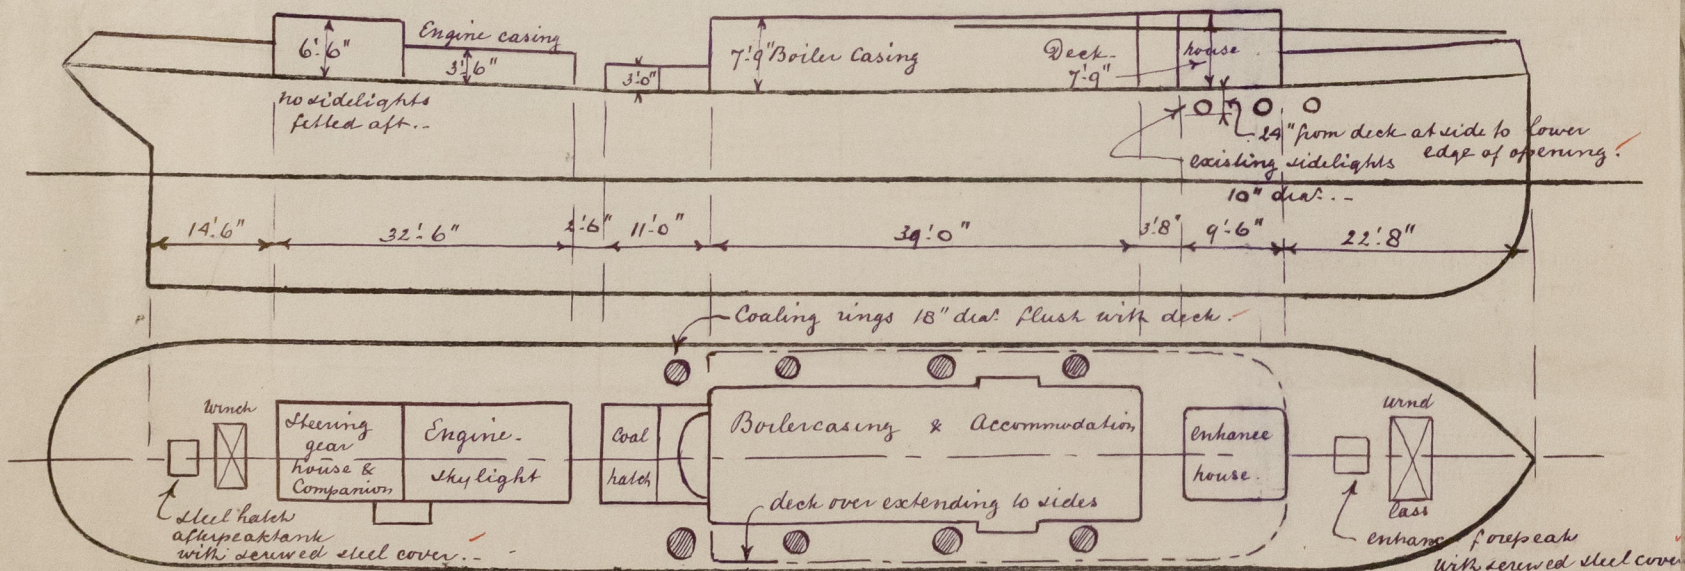 6'-6"
Engine casing
3'-6"
3'-0"
7'-9" Boiler Casing
Deck-
house
7'-9"
no sidelights
fitted aft.-
24" from deck at side to lower
edge of opening.
existing sidelights
10" diar. -
14'-6"
32'-6"
2'-6"
11'-0"
39'-0"
3'-8"
9'-6"
22'-8"
Coaling rings 18" diar. flush with deck.
Winch
Steering
gear
house &
Companion
Engine-
skylight
Coal
hatch
Boilercasing & Accommodation
deck over extending to sides
entrance
house.
wind
lass
steel hatch
afterpeaktank
with screwed steel cover.-
entrance forepeak
with screwed steel cover